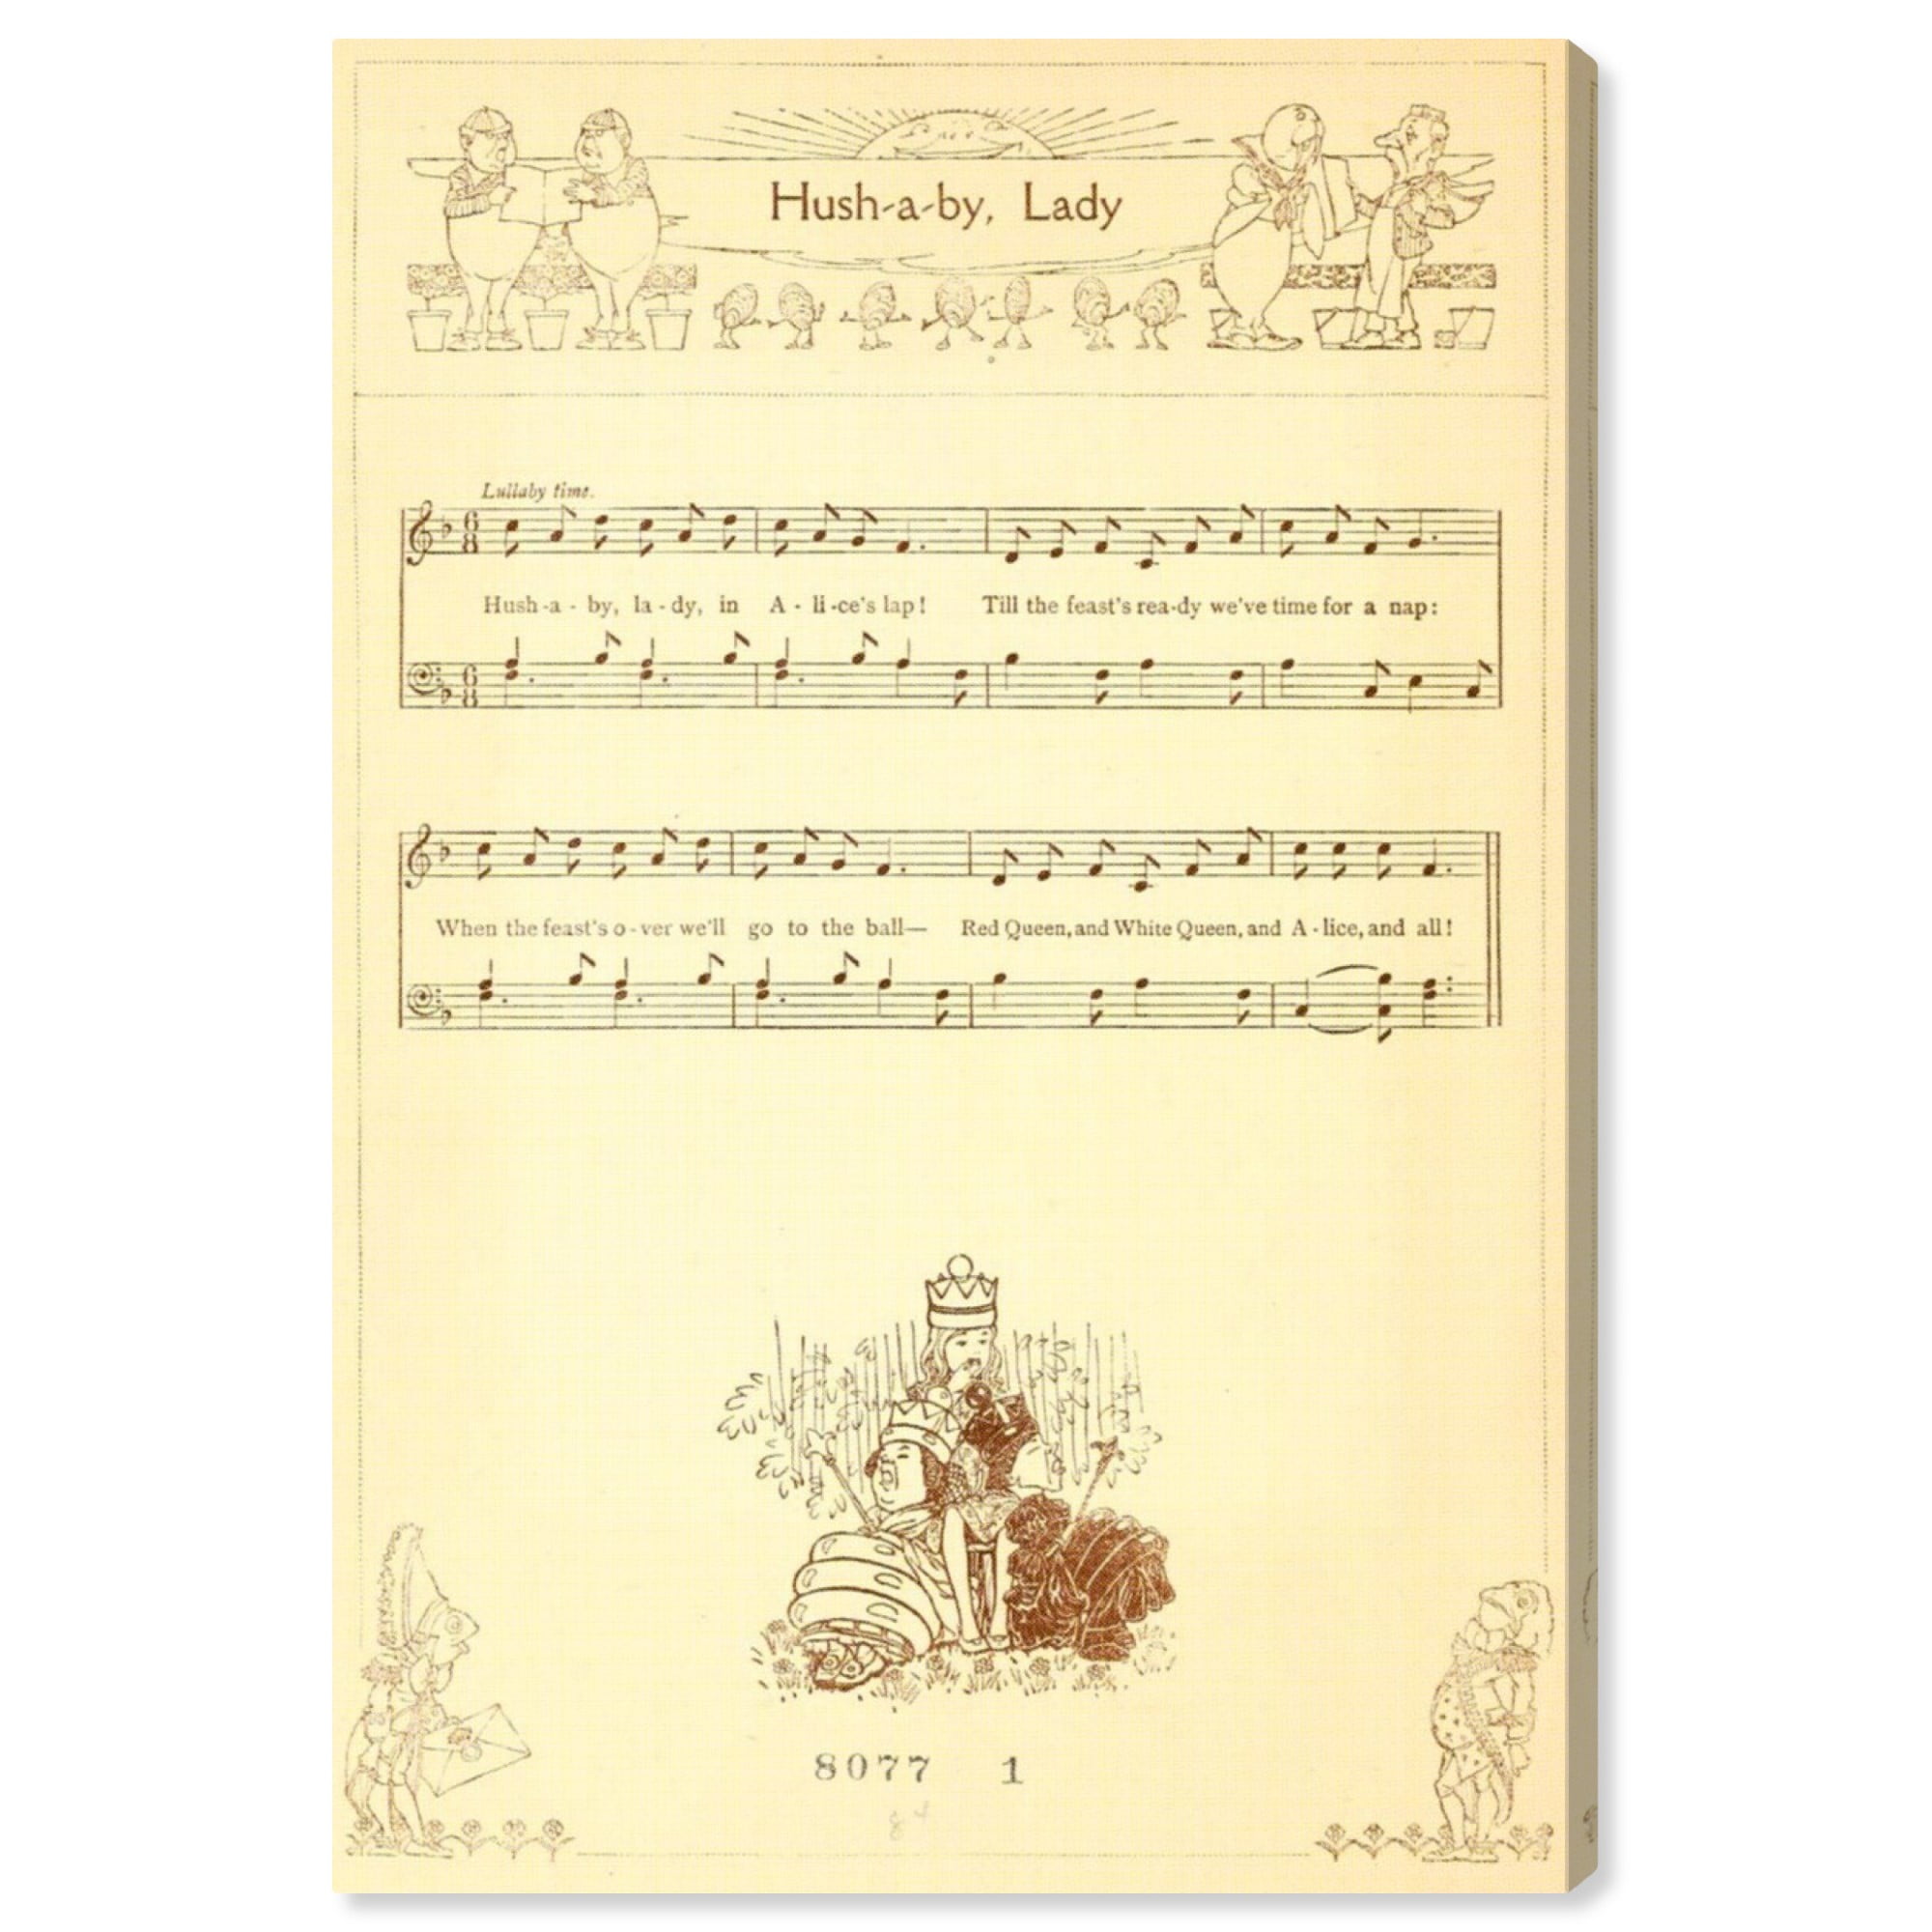 Hush-a-by, Lady
Lullaby time.
6 8
Hush-a-by, la-dy, in A-li-ce's lap! Till the feast's rea-dy we've time for a nap:
6 8
When the feast's o-ver we'll go to the ball— Red Queen, and White Queen, and A-lice, and all!
8077 1
84